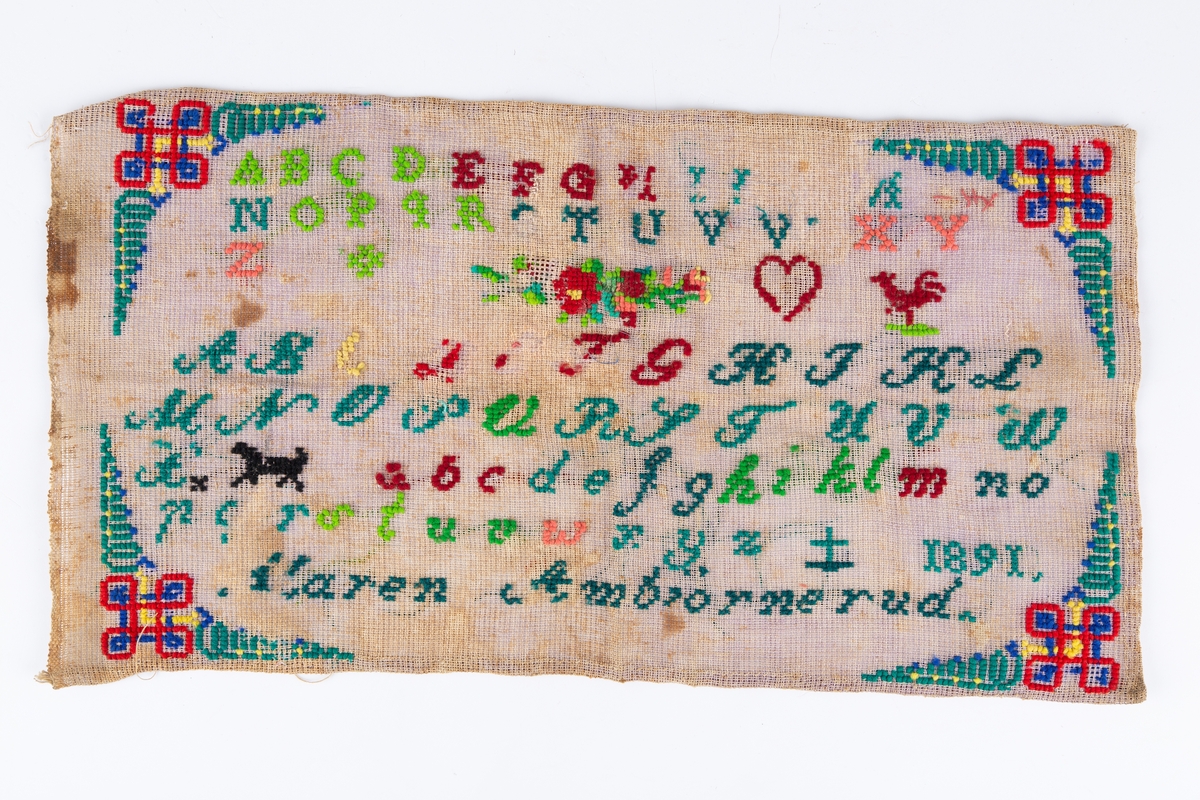 A B C D E F G H I J Å
N O P Q R S T U V V X Y
Z
A B C D E F G H I K L
M N O P Q R S T U V W
X a b c d e f g h i k l m n o
p q r s t u v w x y z 1891.
Maren Ambiornerud.